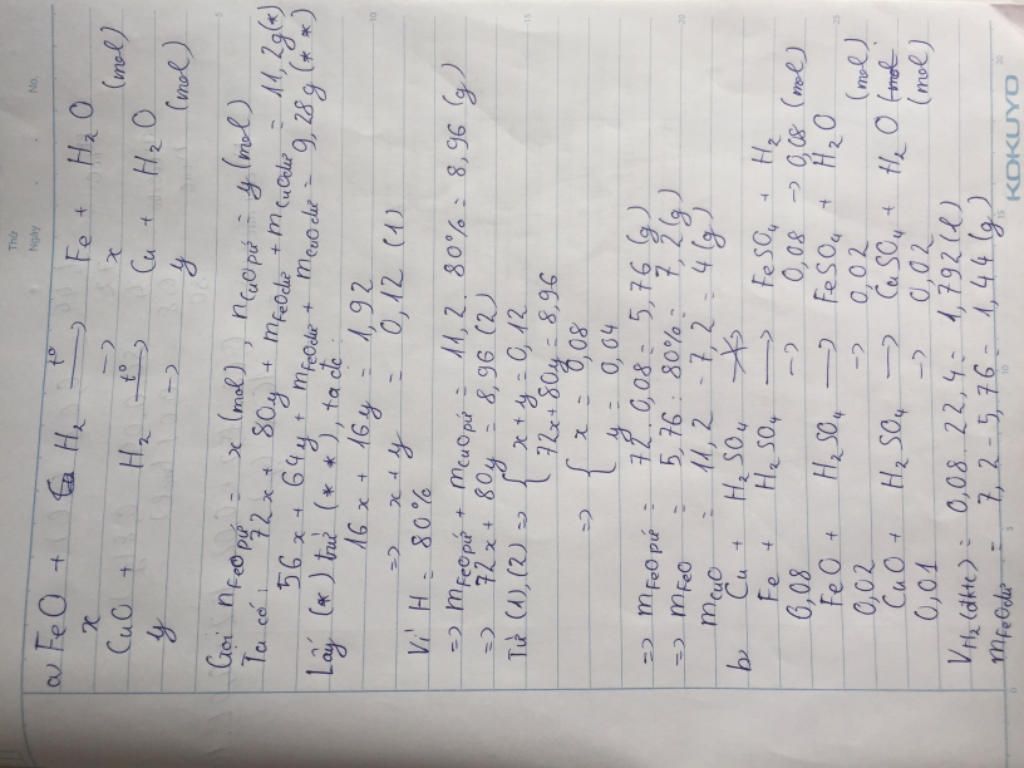 Thứ
Ngày
No.
a) FeO + H₂ —t°→ Fe + H₂O
x → x (mol)
CuO + H₂ —t°→ Cu + H₂O
y → y (mol)
Gọi n FeO pứ = x (mol), n CuO pứ = y (mol)
Ta có: 72x + 80y + m FeO dư + m CuO dư = 11,2g (*)
56x + 64y + m FeO dư + m CuO dư = 9,28g (**)
Lấy (*) trừ (**), ta đc:
16x + 16y = 1,92
=> x + y = 0,12 (1)
Vì H = 80%
=> m FeO pứ + m CuO pứ = 11,2 . 80% = 8,96 (g)
=> 72x + 80y = 8,96 (2)
Từ (1), (2) => { x + y = 0,12
72x + 80y = 8,96
=> { x = 0,08
y = 0,04
=> m FeO pứ = 72 . 0,08 = 5,76 (g)
=> m FeO = 5,76 : 80% = 7,2 (g)
m CuO = 11,2 - 7,2 = 4 (g)
b Cu + H₂SO₄ -×->
Fe + H₂SO₄ → FeSO₄ + H₂
0,08 → 0,08 → 0,08 (mol)
FeO + H₂SO₄ → FeSO₄ + H₂O
0,02 → 0,02 (mol)
CuO + H₂SO₄ → CuSO₄ + H₂O (mol)
0,01 → 0,02 (mol)
V H₂ (đktc) = 0,08 . 22,4 = 1,792 (l)
m FeO dư = 7,2 - 5,76 = 1,44 (g)
KOKUYO
0 5 10 15 20
5
10
15
20
25